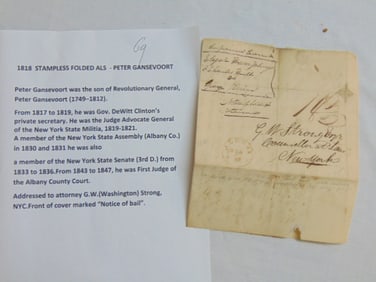 69
1818 STAMPLESS FOLDED ALS - PETER GANSEVOORT
Peter Gansevoort was the son of Revolutionary General,
Peter Gansevoort (1749–1812).
From 1817 to 1819, he was Gov. DeWitt Clinton's
private secretary. He was the Judge Advocate General
of the New York State Militia, 1819-1821.
A member of the New York State Assembly (Albany Co.)
in 1830 and 1831 he was also
a member of the New York State Senate (3rd D.) from
1833 to 1836.From 1843 to 1847, he was First Judge of
the Albany County Court.
Addressed to attorney G.W.(Washington) Strong,
NYC.Front of cover marked "Notice of bail".
G. W. Strong Esqr
Counsellor at Law
New York